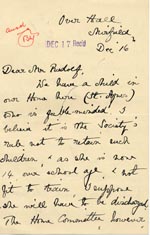 Over Hall
Mirfield
Dec 16
DEC 17 Recd
Dear Mr Rudolf,
We have a child in
our Home here (St. Agnes')
who is feeble-minded. I
believe it is the Society's
rule not to retain such
children, & as she is now
14, our school age, & not
fit to train I suppose
she will have to be discharged.
The Home Committee however